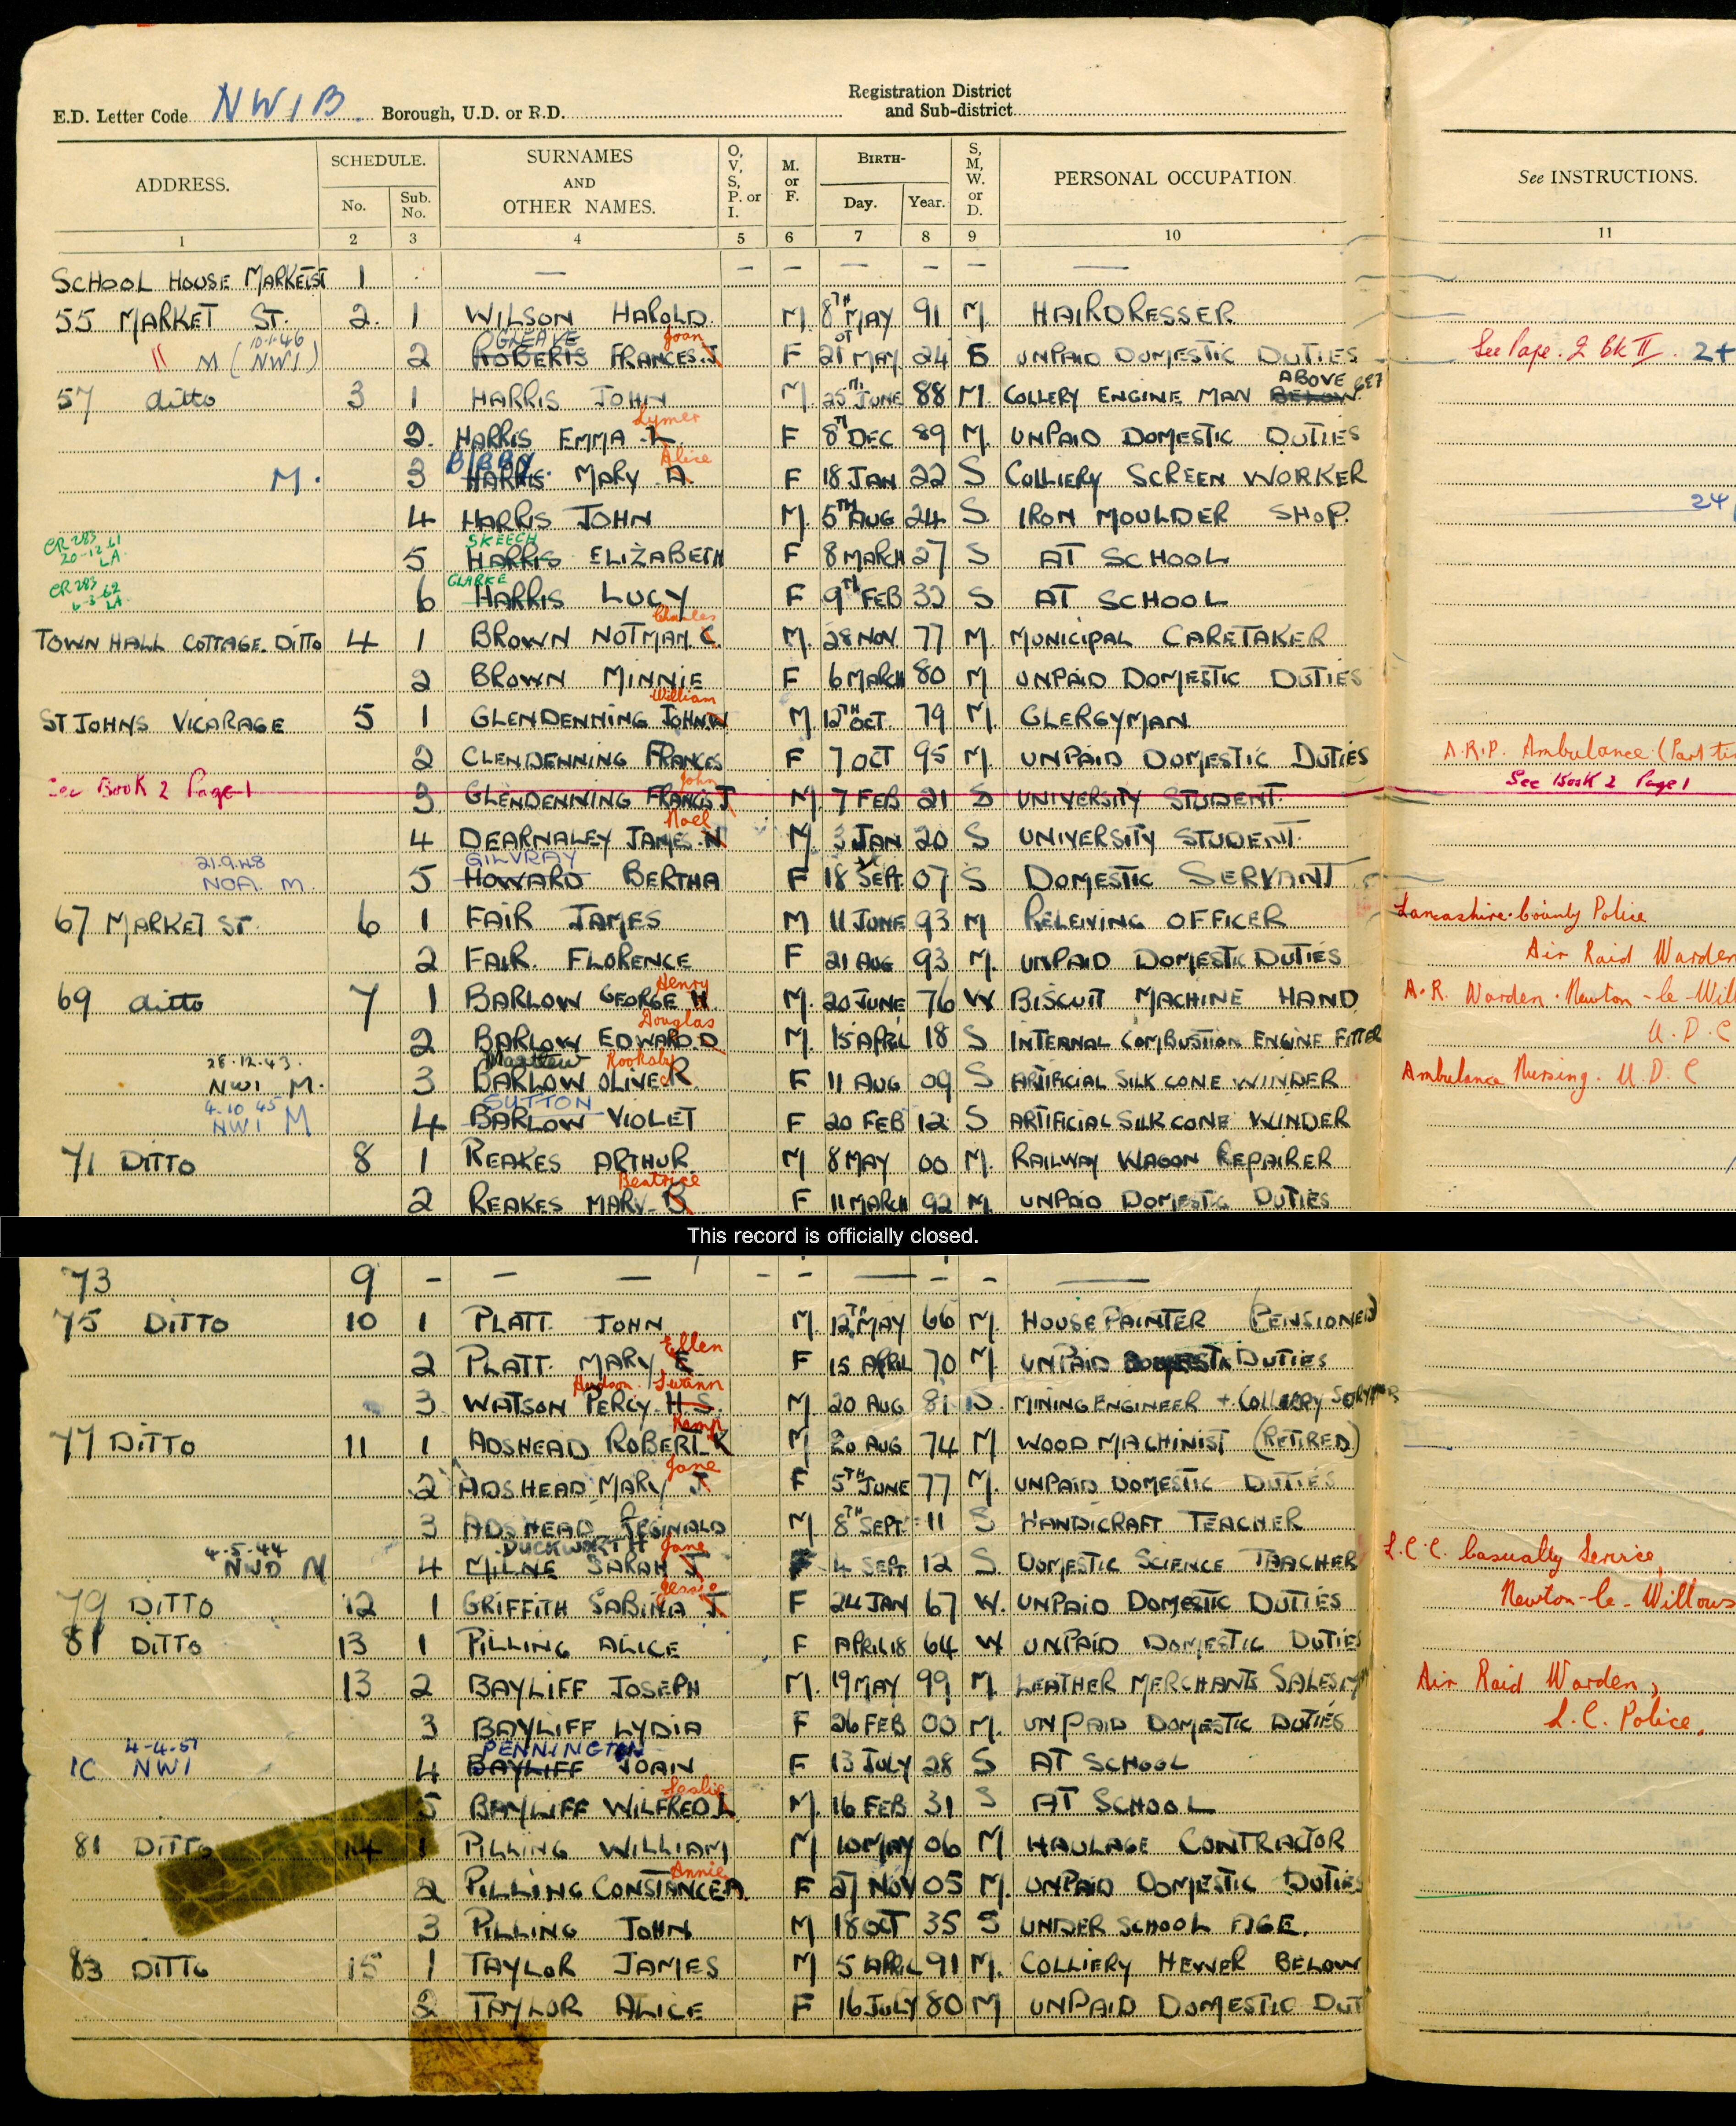 E.D. Letter Code NW1B. Borough, U.D. or R.D. Registration District and Sub-district
ADDRESS. SCHEDULE. No. Sub. No. SURNAMES AND OTHER NAMES. O, V, S, P. or I. M. or F. BIRTH- Day. Year. S, M, W. or D. PERSONAL OCCUPATION See INSTRUCTIONS.
1 2 3 4 5 6 7 8 9 10 11
SCHOOL HOUSE MARKET ST 1 — — — — — — —
55 MARKET ST. 2. 1 WILSON HAROLD M. 8TH MAY 91 M. HAIRDRESSER
10.1.46 OGLEAVE Joan
" M (NW1) 2 ROBERTS FRANCES.J F 21ST MAY 24 S UNPAID DOMESTIC DUTIES See Page. 2 bk II. 2+
57 ditto 3 1 HARRIS JOHN M. 25TH JUNE 88 M. COLLERY ENGINE MAN BELOW ABOVE
Lymer
2. HARRIS EMMA .L. F 8TH DEC 89 M. UNPAID DOMESTIC DUTIES
BIBBY. Alice
M. 3 HARRIS MARY A. F 18 JAN 22 S COLLIERY SCREEN WORKER
4 HARRIS JOHN M. 5TH AUG 24 S. IRON MOULDER SHOP. 24
CR 283 20-12-61 LA SKEECH
5 HARRIS ELIZABETH F 8 MARCH 27 S AT SCHOOL
CR 283 6-3-62 LA CLARKE
6 HARRIS LUCY F 9TH FEB 33 S AT SCHOOL
Charles
TOWN HALL COTTAGE. DITTO 4 1 BROWN NOTMAN. C. M. 28 NOV. 77 M. MUNICIPAL CARETAKER
2 BROWN MINNIE F 6 MARCH 80 M UNPAID DOMESTIC DUTIES
William
ST JOHNS VICARAGE 5 1 GLENDENNING JOHN.W M. 12TH OCT. 79 M. CLERGYMAN
2 CLENDENNING FRANCES F 7 OCT 95 M. UNPAID DOMESTIC DUTIES A.R.P. Ambulance (Part ti
John
See Book 2 Page 1 3 GLENDENNING FRANCIS J M. 7 FEB 21 S UNIVERSITY STUDENT. See Book 2 Page 1
Noel
4 DEARNALEY JAMES.N M. 3 JAN 20 S UNIVERSITY STUDENT.
21.9.48 GILVRAY
NOA. M. 5 HOWARD BERTHA F 18 SEPT 07 S DOMESTIC SERVANT
67 MARKET ST. 6 1 FAIR JAMES M 11 JUNE 93 M RELEIVING OFFICER Lancashire County Police
2 FAIR. FLORENCE F 21 AUG 93 M. UNPAID DOMESTIC DUTIES Air Raid Warden
Henry
69 ditto 7 1 BARLOW GEORGE H. M. 20 JUNE 76 W BISCUIT MACHINE HAND A.R. Warden. Newton-le-Wil
Douglas
2 BARLOW EDWARD.D M. 15 APRIL 18 S INTERNAL COMBUSTION ENGINE FITTER U.D.C
28.12.43. Rooksby
NW1 M. 3 BARLOW OLIVE R F 11 AUG 09 S ARTIFICIAL SILK CONE WINDER Ambulance Nursing. U.D.C
4.10 45 SUTTON
NW1 M 4 BARLOW VIOLET F 20 FEB 12 S ARTIFICIAL SILK CONE WINDER
71 DITTO 8 1 REAKES ARTHUR. M 8 MAY 00 M. RAILWAY WAGON REPAIRER
Beatrice
2 REAKES MARY. B F 11 MARCH 92 M. UNPAID DOMESTIC DUTIES
This record is officially closed.
73 9 - — — - - — - - —
75 DITTO 10 1 PLATT. JOHN M. 12TH MAY 66 M. HOUSE PAINTER (PENSIONED)
Ellen
2 PLATT. MARY E F 15 APRIL 70 M. UNPAID DOMESTIC DUTIES
Hudson. Swann
3 WATSON PERCY. H.S. M. 20 AUG 81 D. MINING ENGINEER + COLLIERY
Kemp
77 DITTO 11 1 ADSHEAD ROBERT K M 20 AUG 74 M WOOD MACHINIST (RETIRED)
Jane
2 ADSHEAD MARY J F 5TH JUNE 77 M. UNPAID DOMESTIC DUTIES
3 ADSHEAD REGINALD M 8TH SEPT 11 S HANDICRAFT TEACHER
4.5.44 DUCKWORTH Jane
NWD M 4 MILNE SARAH J F 4 SEPT 12 S. DOMESTIC SCIENCE TEACHER L.C.C. Casualty Service,
Jessie
79 DITTO 12 1 GRIFFITH SABINA J F 24 JAN 67 W. UNPAID DOMESTIC DUTIES Newton-le-Willows
81 DITTO 13 1 PILLING ALICE F APRIL 18 64 W UNPAID DOMESTIC DUTIES
13 2 BAYLIFF JOSEPH M. 19 MAY 99 M. LEATHER MERCHANTS SALESM Air Raid Warden,
3 BAYLIFF LYDIA F 26 FEB 00 M. UNPAID DOMESTIC DUTIES L.C. Police.
4-4-51 PENNINGTON
1C NW1 4 BAYLIFF JOAN F 13 JULY 28 S AT SCHOOL
Leslie
5 BAYLIFF WILFRED L M. 16 FEB 31 S AT SCHOOL
81 DITTO 14 1 PILLING WILLIAM M 10 MAY 06 M HAULAGE CONTRACTOR
Annie
2 PILLING CONSTANCE.A. F 27 NOV 05 M. UNPAID DOMESTIC DUTIES
3 PILLING JOHN M 18 OCT 35 S UNDER SCHOOL AGE.
83 DITTO 15 1 TAYLOR JAMES M 5 APRIL 91 M. COLLIERY HEWER BELOW
2 TAYLOR ALICE F 16 JULY 80 M UNPAID DOMESTIC DUT